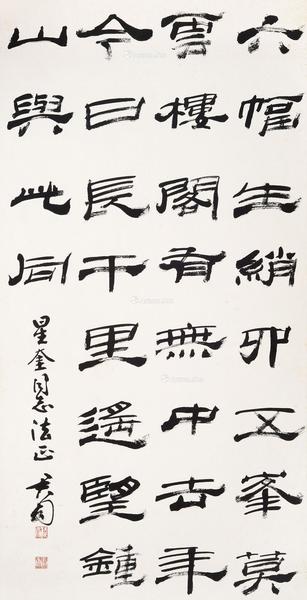 六幅生綃四五峯莫
雲樓閣有無中去年
今日長干里遙望鍾
山與此同
星奎同志法正 君匋